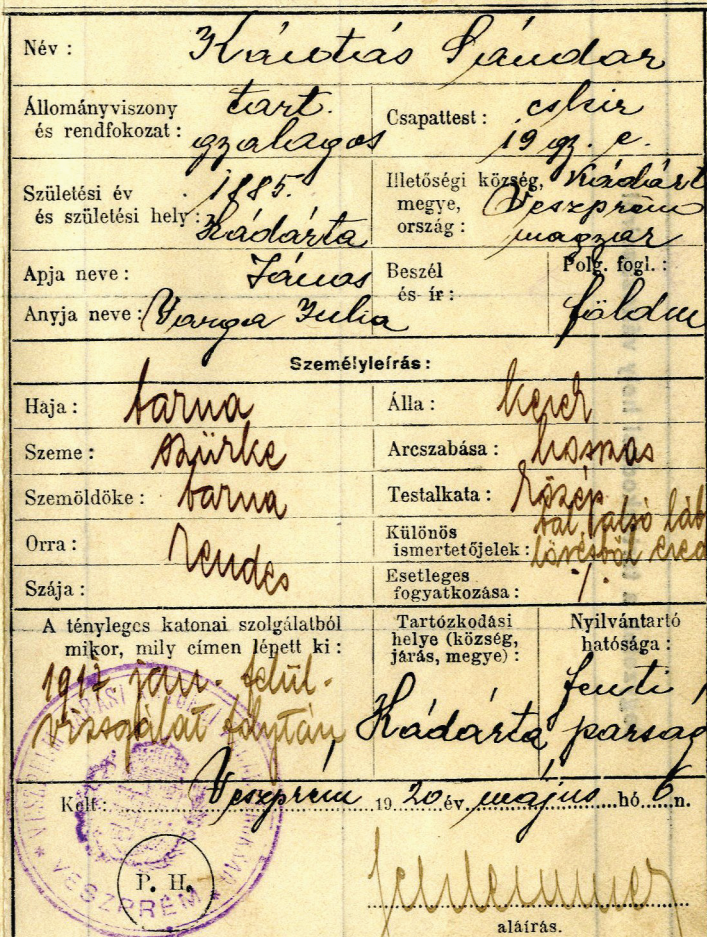 Név : Sándor
Állományviszony és rendfokozat : tart. gyalogos
Csapattest : cs. kir 19 gy. e.
Születési év és születési hely : 1885. Kádárta
Illetőségi község, megye, ország : Kádárt Veszprém magyar
Apja neve : János
Beszél és ír :
Polg. fogl. : földm
Anyja neve : Varga Julia
Személyleírás :
Haja : barna
Álla : kerek
Szeme : szürke
Arcszabása : hosszas
Szemöldöke : barna
Testalkata : közép
Orra : rendes
Különös ismertetőjelek : bal alsó láb lövésből ered
Szája :
Esetleges fogyatkozása : /.
A tényleges katonai szolgálatból mikor, mily címen lépett ki :
1917. jan. felül-
vizsgálat folytán
Tartózkodási helye (község, járás, megye) :
Kádárta
Nyilvántartó hatósága :
fenti
Kelt: Veszprém 1920 év május hó 6 n.
P. H.
VESZPRÉM
aláírás.